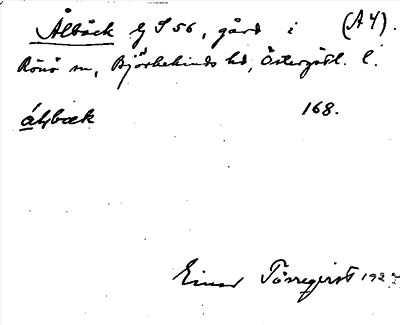 Ålbäck Gj S 56, gård i (A4).
Rönö sn, Björkekinds hd, Östergötl. l.
álbæk 168.
Einar Törneqvist 1927